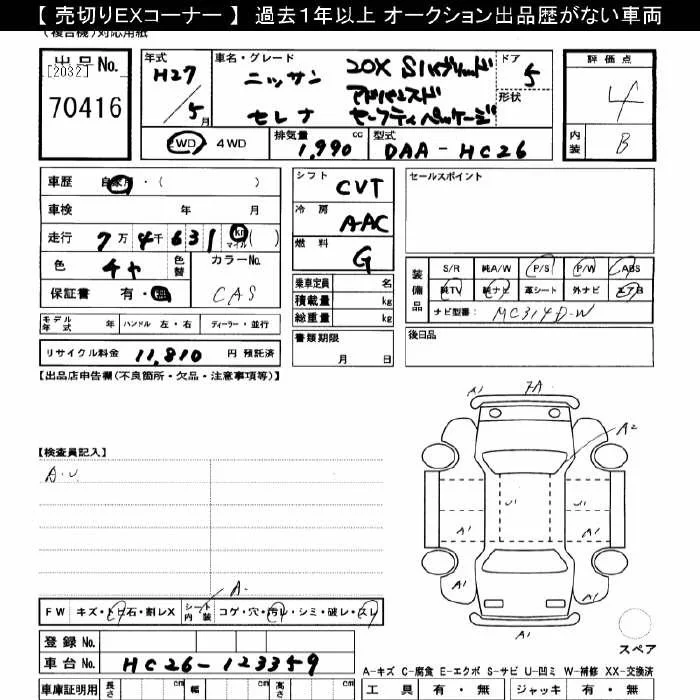 【 売切りEXコーナー 】 過去１年以上 オークション出品歴がない車両
(複合機)対応用紙
出品No. [2032] 70416
年式 H27 / 5月
車名・グレード ニッサン セレナ
20X Sハイブリッド
アドバンスド
セーフティパッケージ
ドア 5
形状
評価点 4
内装 B
2WD・4WD
排気量 1,990 cc
型式 DAA-HC26
車歴 自家用・( )
車検 年 月
走行 7万4千631 km マイル ( )
色 チャ 色替 カラーNo. CAS
保証書 有・無
モデル年式 年 ハンドル 左・右 ディーラー・並行
リサイクル料金 11,810 円 預託済
シフト CVT
冷房 AAC
燃料 G
乗車定員 名
積載量 kg
総重量 kg
書類期限 月 日
セールスポイント
装備品 S/R 純A/W P/S P/W ABS
純TV 純ナビ 革シート 外ナビ エアB
ナビ型番: MC314D-W
後日品
【出品店申告欄(不良箇所・欠品・注意事項等)】
【検査員記入】
A.U.
A1 7A
A2
U1 U1
A1 A1
A1 A1
A1
A.
FW キズ・トビ石・割レX シート内装 コゲ・穴・汚レ・シミ・破レ・スレ
登録No.
車台No. HC26-123359
車庫証明用 長さ cm 幅 cm 高さ cm
スペア
A-キズ C-腐食 E-エクボ S-サビ U-凹ミ W-補修 XX-交換済
工具 有・無 ジャッキ 有・無